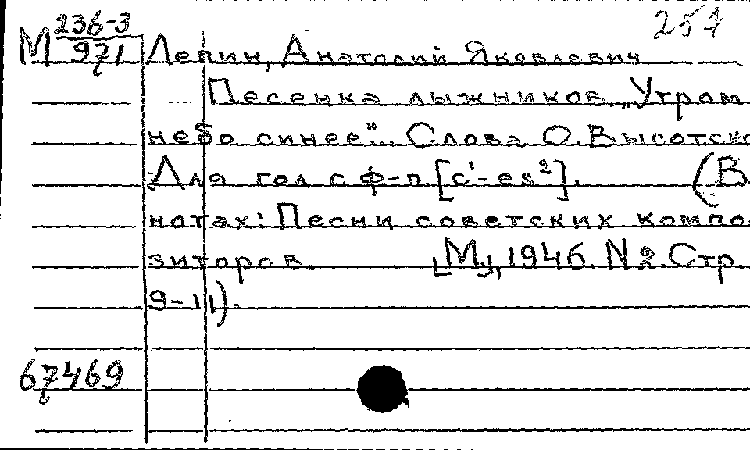 236-3
М 971
257
Лепин, Анатолий Яковлевич
Песенка лыжников „Утром
небо синее“.. Слова О. Высотско
Для гол. с ф-п [c¹-es²]. (В
нотах: Песни советских компо
зиторов. [М.], 1946. N 2. Стр.
9-11).
67469